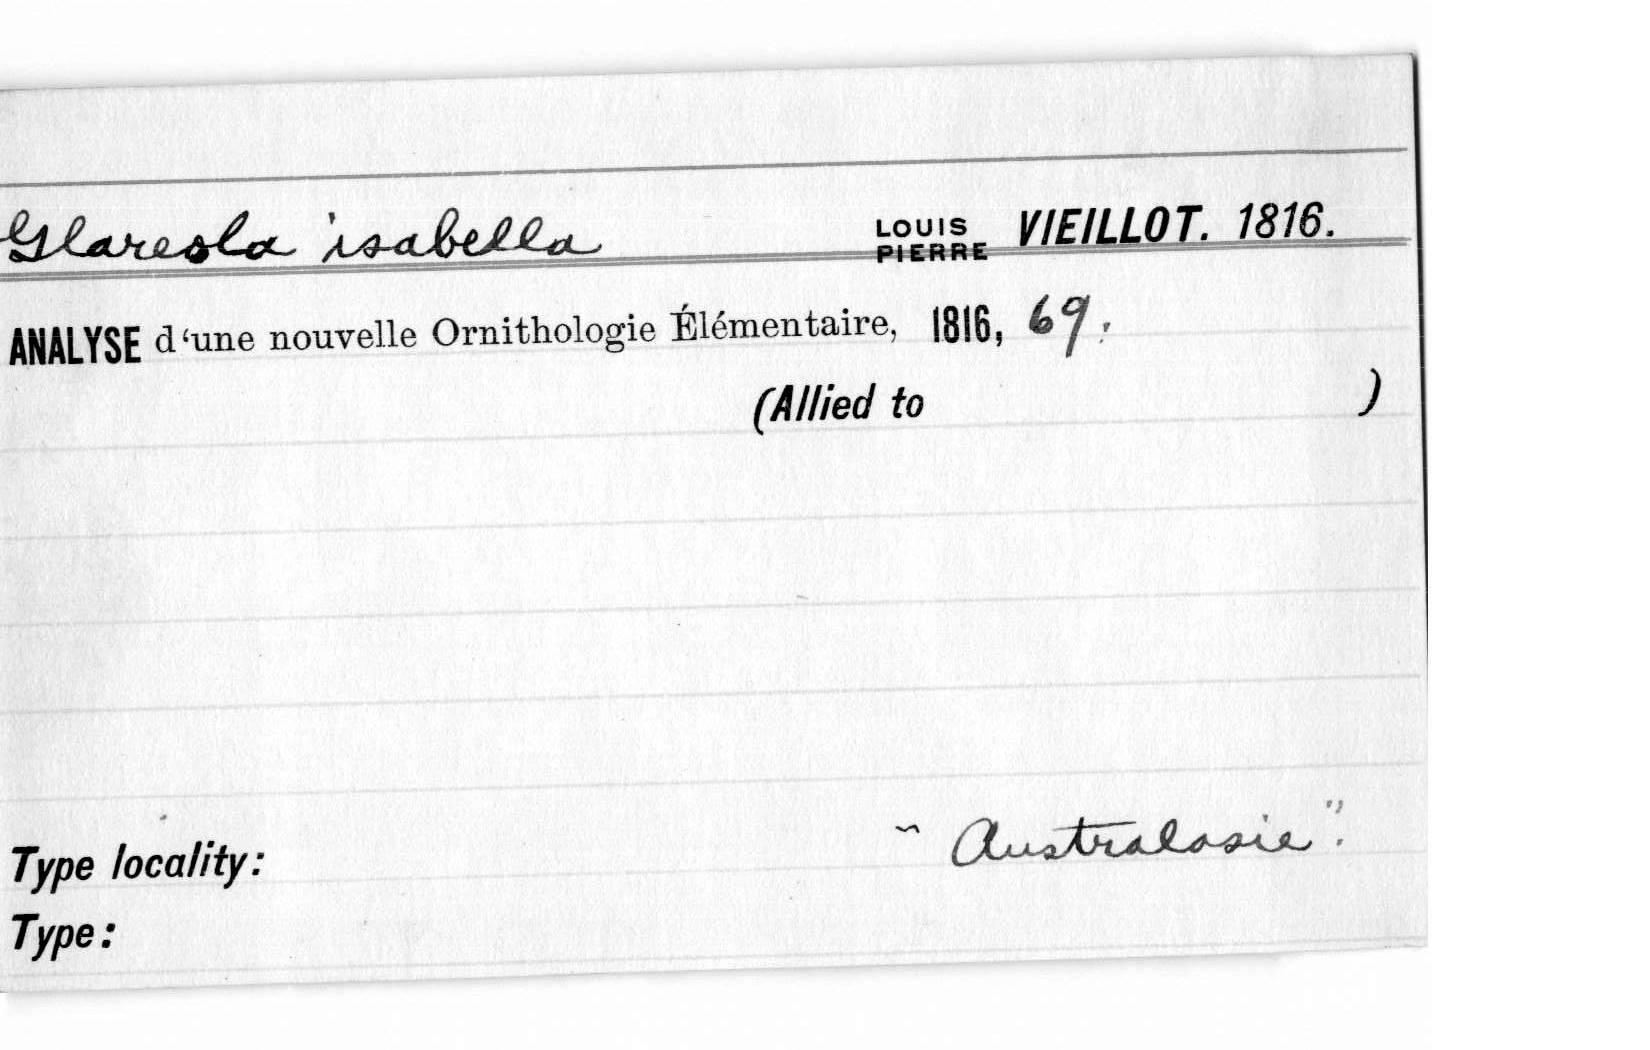 Glareola isabella LOUIS PIERRE VIEILLOT. 1816.
ANALYSE d'une nouvelle Ornithologie Élémentaire, 1816, 69.
(Allied to )
Type locality: "Australasie".
Type: